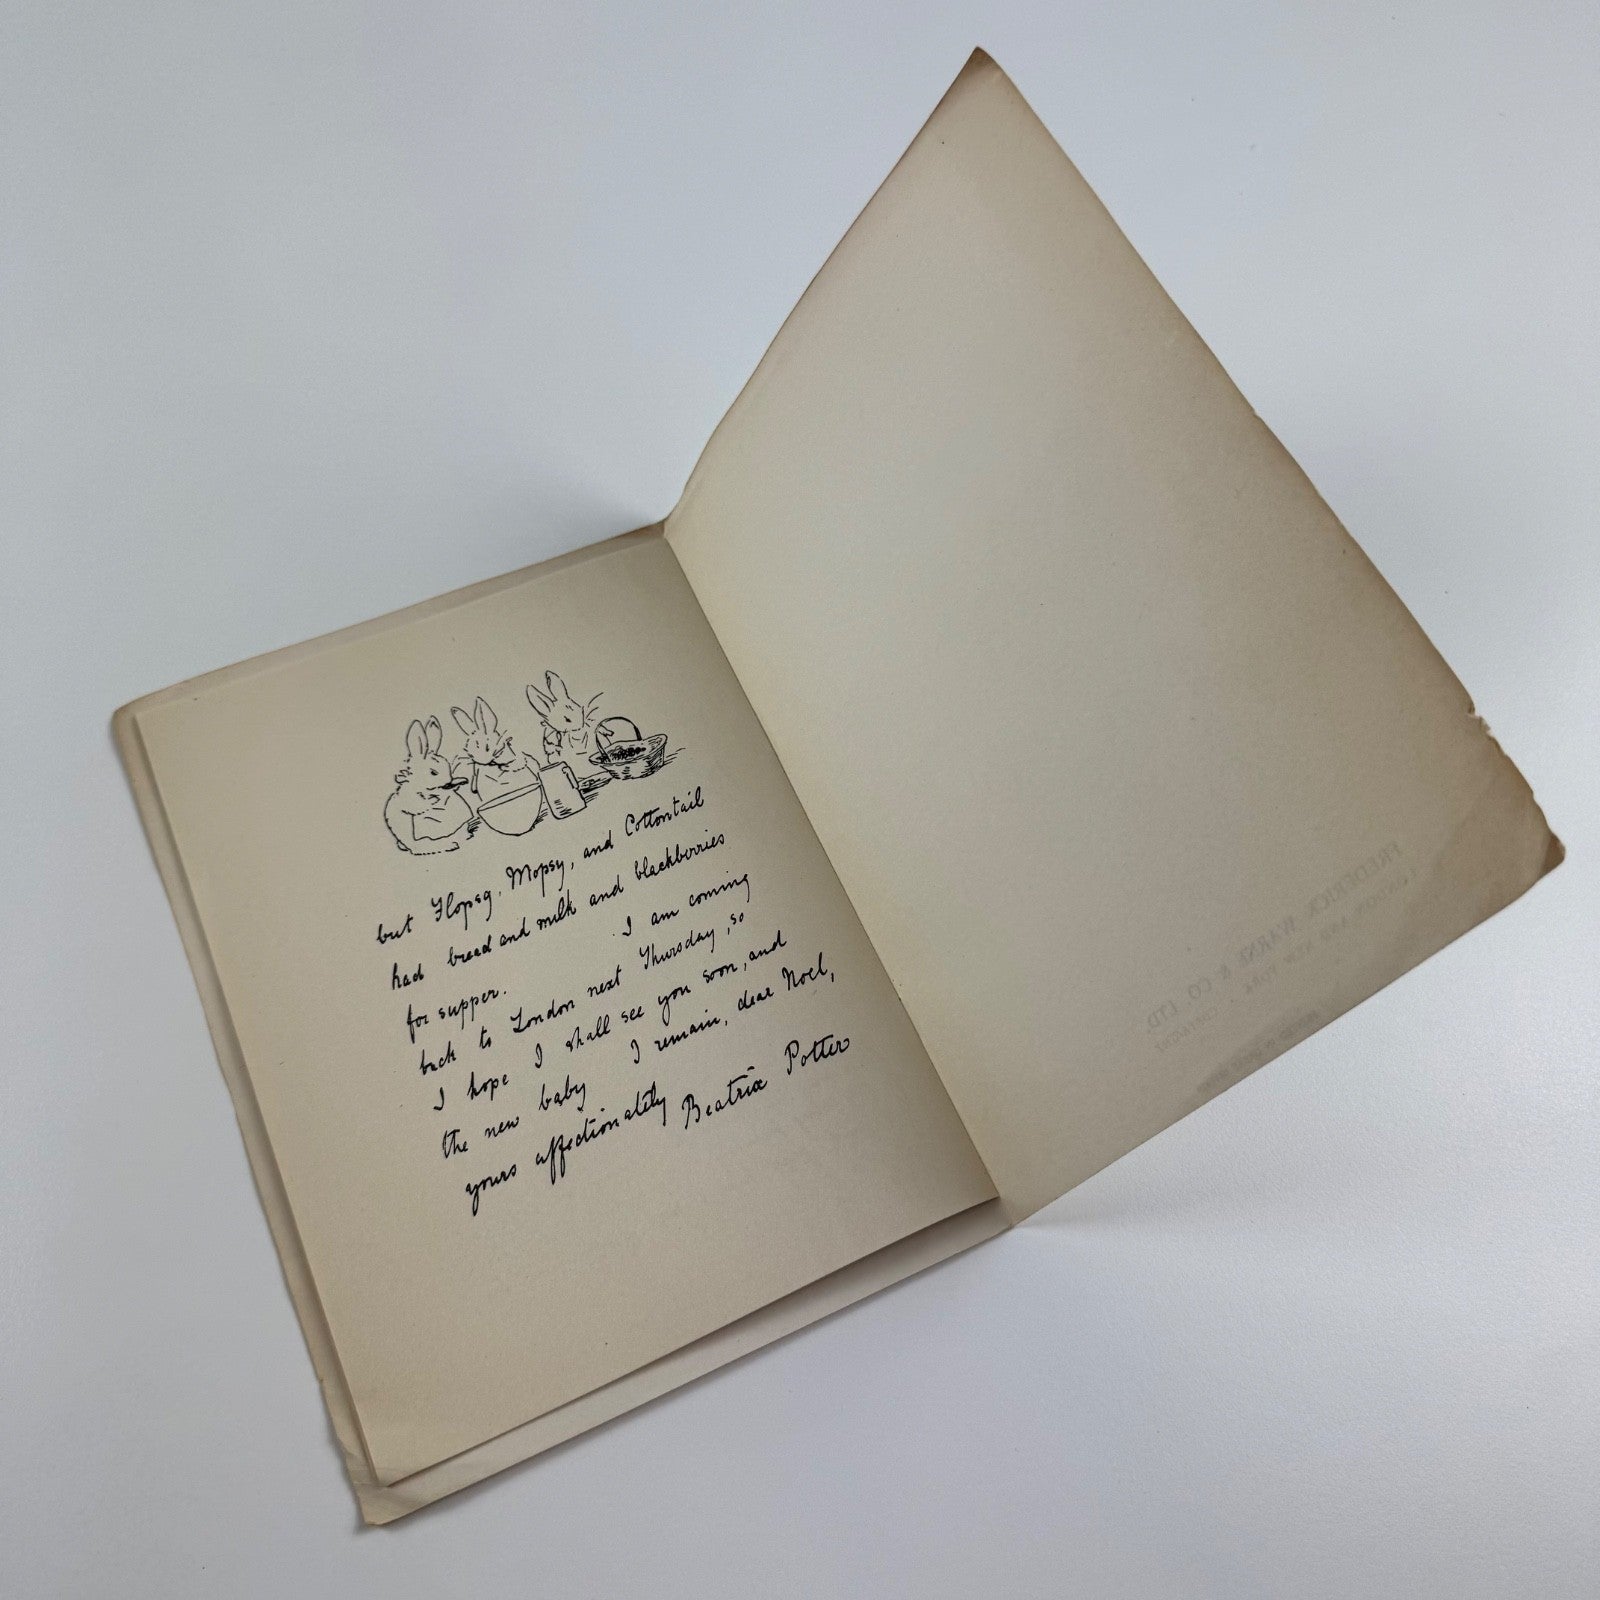 but Flopsy, Mopsy, and Cottontail
had bread and milk and blackberries
for supper. I am coming
back to London next Thursday, so
I hope I shall see you soon, and
the new baby I remain, dear Noel,
yours affectionately
Beatrix Potter
FREDERICK WARNE & CO LTD
LONDON AND NEW YORK